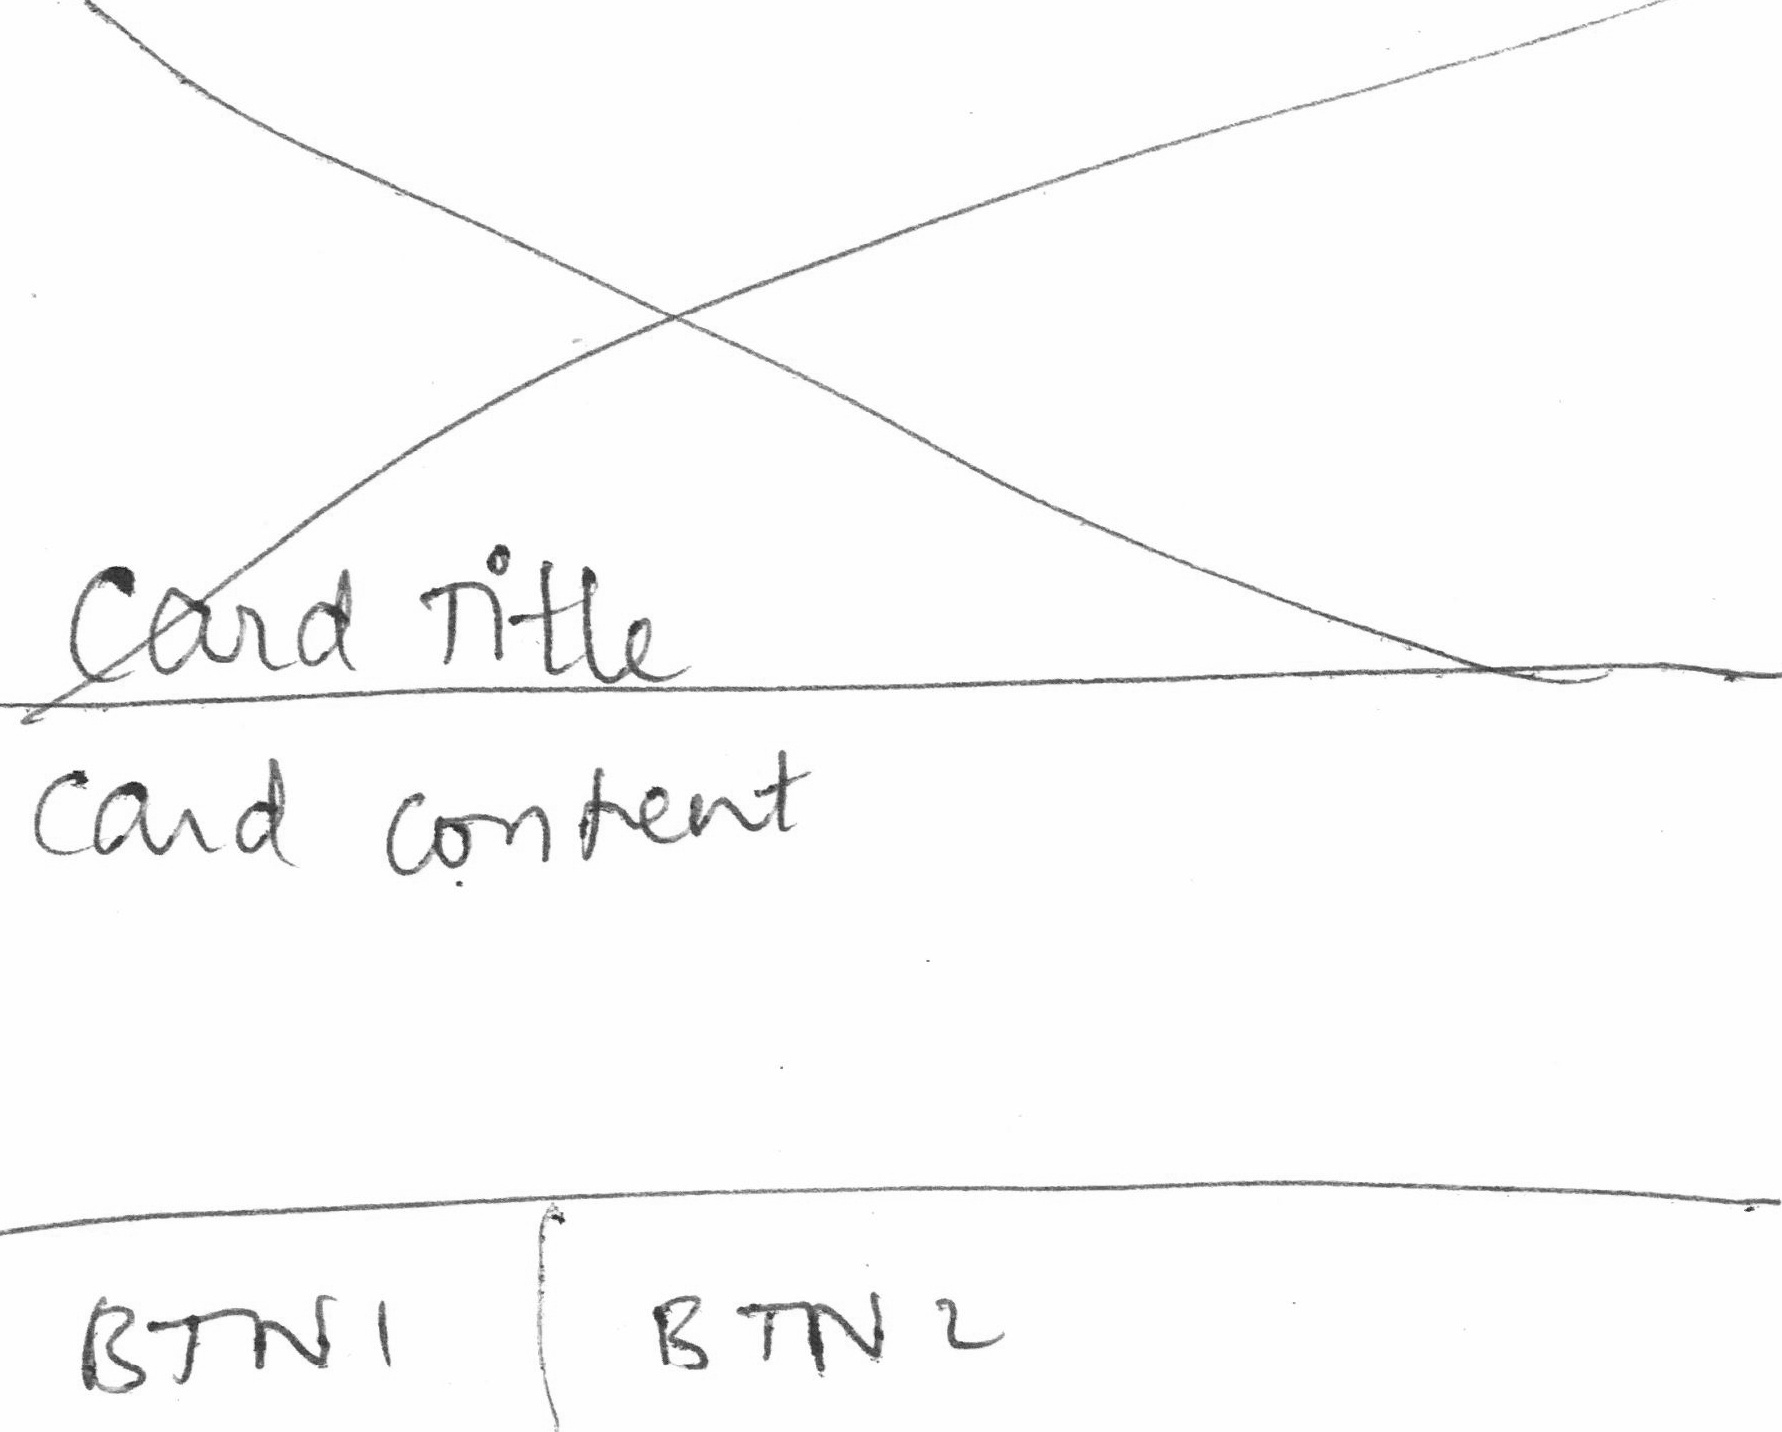 Card Title
Card content
BTN1
BTN2